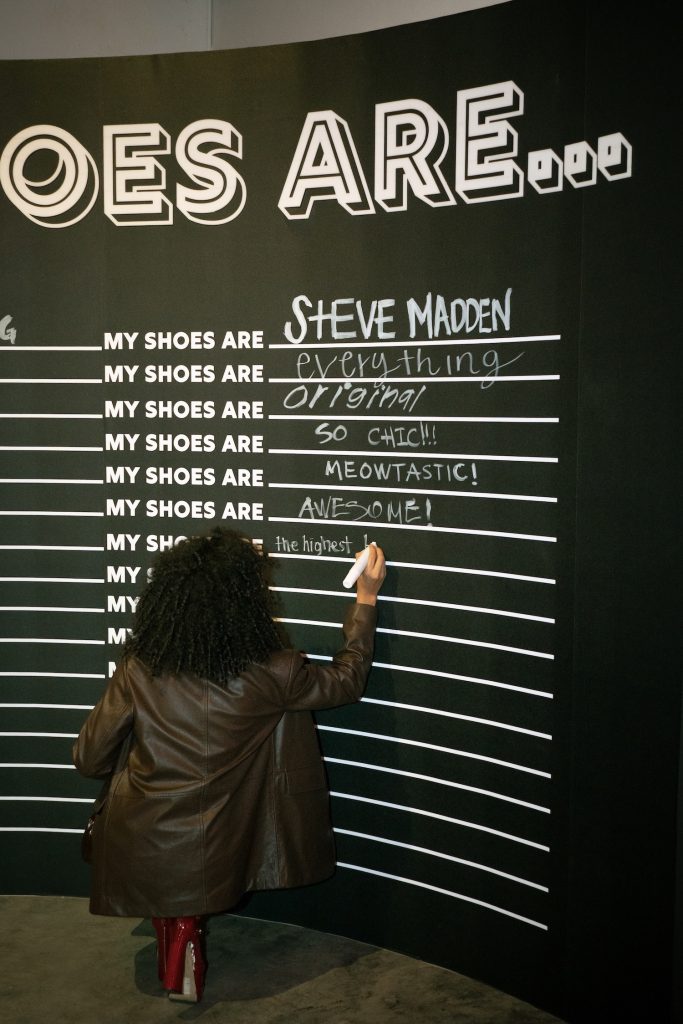 OES ARE...
G
MY SHOES ARE STEVE MADDEN
MY SHOES ARE everything
MY SHOES ARE original
MY SHOES ARE SO CHIC!!!
MY SHOES ARE MEOWTASTIC!
MY SHOES ARE AWESOME!
MY the highest
MY
MY
MY